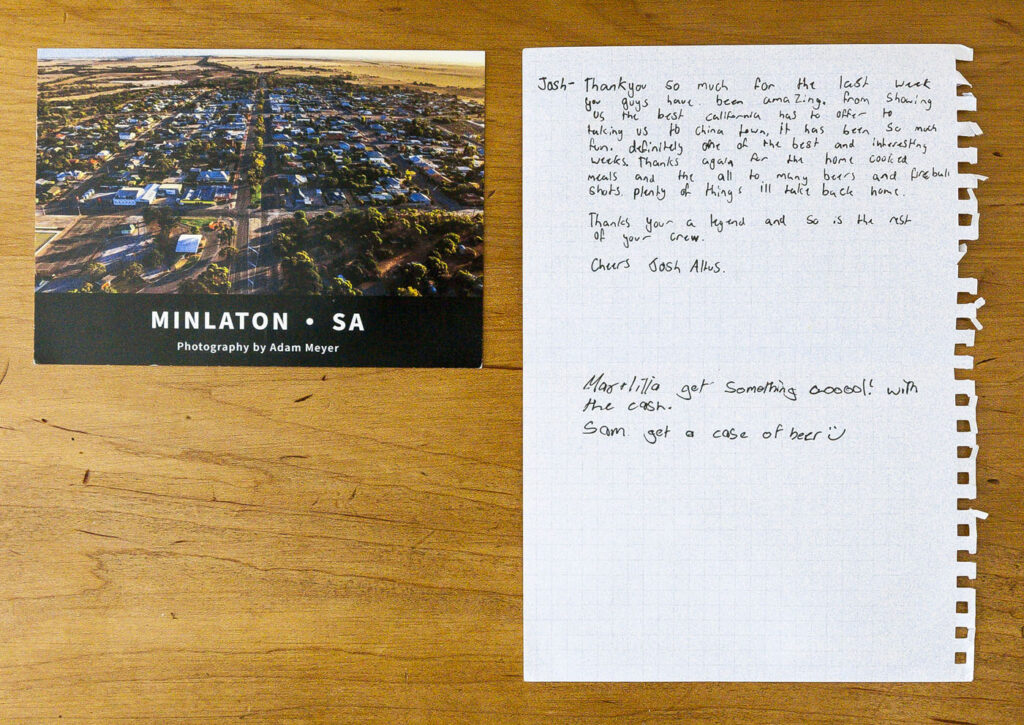 MINLATON • SA
Photography by Adam Meyer
Josh- Thankyou so much for the last week
you guys have been amazing. From showing
us the best california has to offer to
taking us to China town, it has been so much
fun. definitely one of the best and interesting
weeks. Thanks again for the home cooked
meals and the all to many beers and fireball
shots. plenty of things ill take back home.
Thanks your a legend and so is the rest
of your crew.
Cheers Josh Altus.
get something cooool! with
the cash.
Sam get a case of beer :)